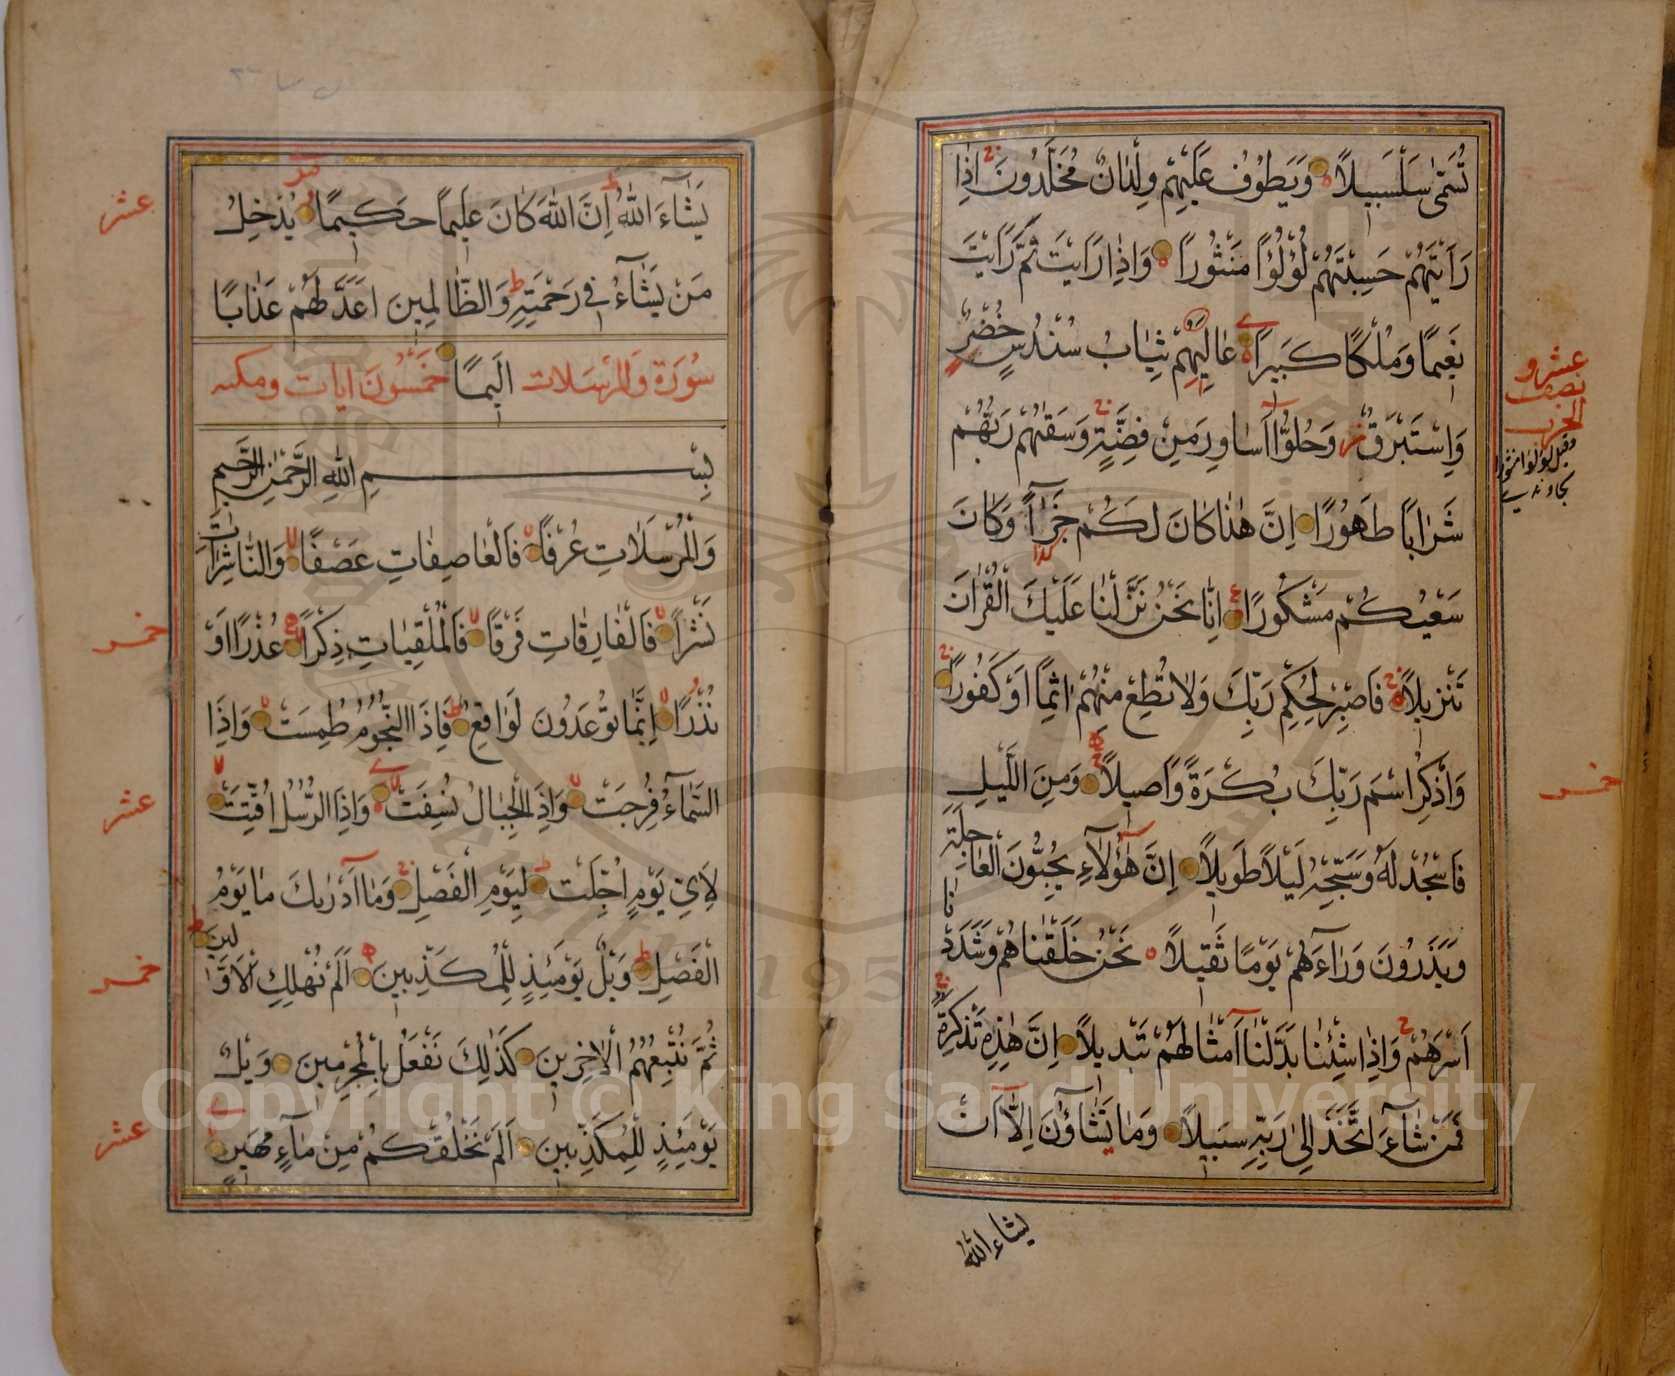 تُسَمّٰى سَلْسَبيلًا وَيَطُوفُ عَلَيْهِمْ وِلْدَانٌ مُخَلَّدُونَ اِذَا
رَاَيْتَهُمْ حَسِبْتَهُمْ لُؤْلُؤًا مَنْثُورًا وَاِذَا رَاَيْتَ ثَمَّ رَاَيْتَ
نَعيمًا وَمُلْكًا كَبيرًا عَالِيَهُمْ ثِيَابُ سُنْدُسٍ خُضْرٌ
وَاِسْتَبْرَقٌ وَحُلُّوا اَسَاوِرَ مِنْ فِضَّةٍ وَسَقٰيهُمْ رَبُّهُمْ
شَرَابًا طَهُورًا اِنَّ هٰذَا كَانَ لَكُمْ جَزَاءً وَكَانَ
سَعْيُكُمْ مَشْكُورًا اِنَّا نَحْنُ نَزَّلْنَا عَلَيْكَ الْقُرْاٰنَ
تَنْزيلًا فَاصْبِرْ لِحُكْمِ رَبِّكَ وَلَا تُطِعْ مِنْهُمْ اٰثِمًا اَوْ كَفُورًا
وَاذْكُرِ اسْمَ رَبِّكَ بُكْرَةً وَاَصيلًا وَمِنَ الَّيْلِ
فَاسْجُدْ لَهُ وَسَبِّحْهُ لَيْلًا طَويلًا اِنَّ هٰؤُلَاءِ يُحِبُّونَ الْعَاجِلَةَ
وَيَذَرُونَ وَرَاءَهُمْ يَوْمًا ثَقيلًا نَحْنُ خَلَقْنَاهُمْ وَشَدَدْنَا
اَسْرَهُمْ وَاِذَا شِئْنَا بَدَّلْنَا اَمْثَالَهُمْ تَبْديلًا اِنَّ هٰذِهِ تَذْكِرَةٌ
فَمَنْ شَاءَ اتَّخَذَ اِلٰى رَبِّهِ سَبيلًا وَمَا تَشَاؤُنَ اِلَّا اَنْ
يشاء الله
عشر و
نصف
الحزب
خمس
يَشَاءَ اللّٰهُ اِنَّ اللّٰهَ كَانَ عَليمًا حَكيمًا يُدْخِلُ
مَنْ يَشَاءُ في رَحْمَتِهِ وَالظَّالِمينَ اَعَدَّ لَهُمْ عَذَابًا
سُورَة وَالْمُرْسَلَات اَليمًا خَمْسُونَ ايات ومكيه
بِسْمِ اللّٰهِ الرَّحْمٰنِ الرَّحيمِ
وَالْمُرْسَلَاتِ عُرْفًا فَالْعَاصِفَاتِ عَصْفًا وَالنَّاشِرَاتِ
نَشْرًا فَالْفَارِقَاتِ فَرْقًا فَالْمُلْقِيَاتِ ذِكْرًا عُذْرًا اَوْ
نُذْرًا اِنَّمَا تُوعَدُونَ لَوَاقِعٌ فَاِذَا النُّجُومُ طُمِسَتْ وَاِذَا
السَّمَاءُ فُرِجَتْ وَاِذَا الْجِبَالُ نُسِفَتْ وَاِذَا الرُّسُلُ اُقِّتَتْ
لِاَيِّ يَوْمٍ اُجِّلَتْ لِيَوْمِ الْفَصْلِ وَمَا اَدْرٰيكَ مَا يَوْمُ
الْفَصْلِ وَيْلٌ يَوْمَئِذٍ لِلْمُكَذِّبينَ اَلَمْ نُهْلِكِ الْاَوَّلينَ
ثُمَّ نُتْبِعُهُمُ الْاٰخِرينَ كَذٰلِكَ نَفْعَلُ بِالْمُجْرِمينَ وَيْلٌ
يَوْمَئِذٍ لِلْمُكَذِّبينَ اَلَمْ نَخْلُقْكُمْ مِنْ مَاءٍ مَهينٍ
عشر
خمس
عشر
خمس
عشر
Copyright © King Saud University